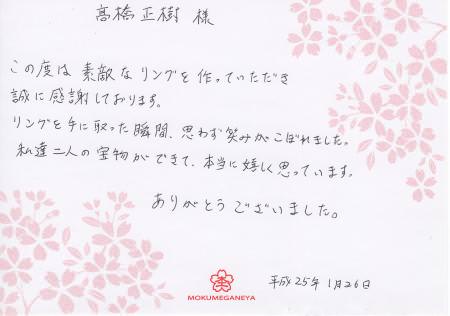 高橋正樹 様
この度は 素敵な リングを 作っていただき
誠に感謝しております。
リングを手に取った瞬間、思わず笑みがこぼれました。
私達二人の宝物ができて、本当に嬉しく思っています。
ありがとうございました。
平成25年 1月26日
MOKUMEGANEYA